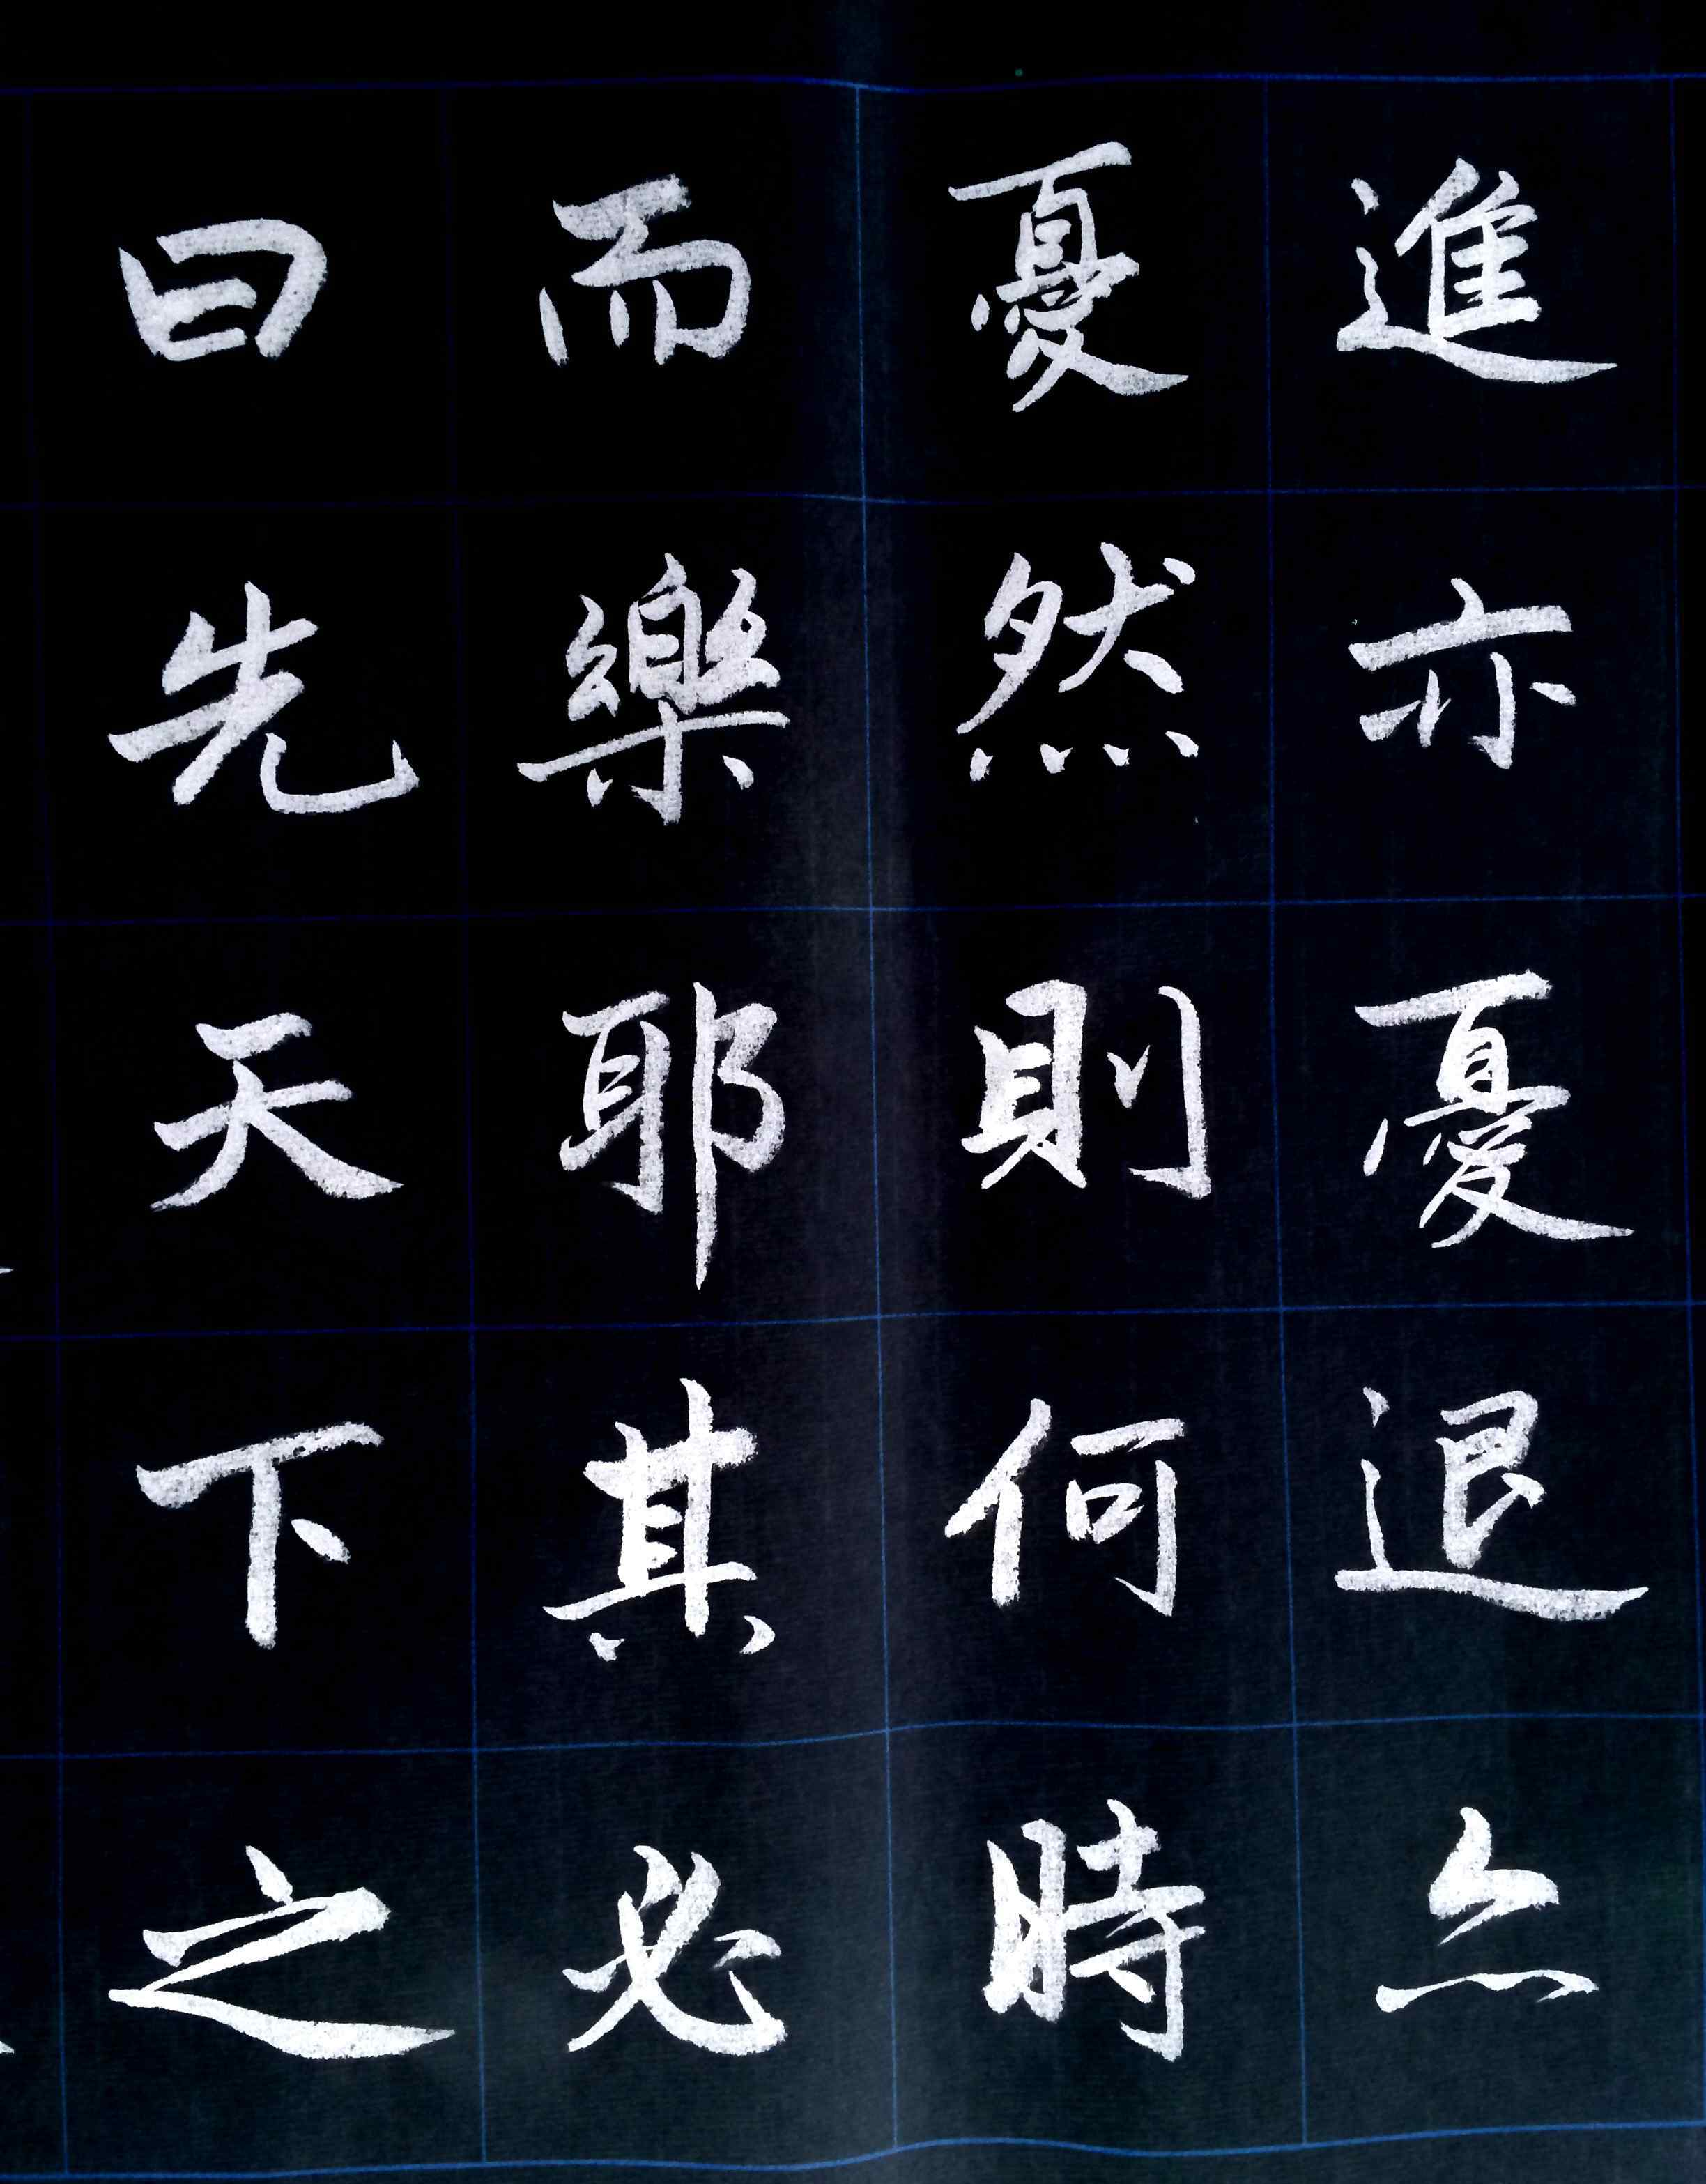 進亦憂退亦
憂然則何時
而樂耶其必
曰先天下之